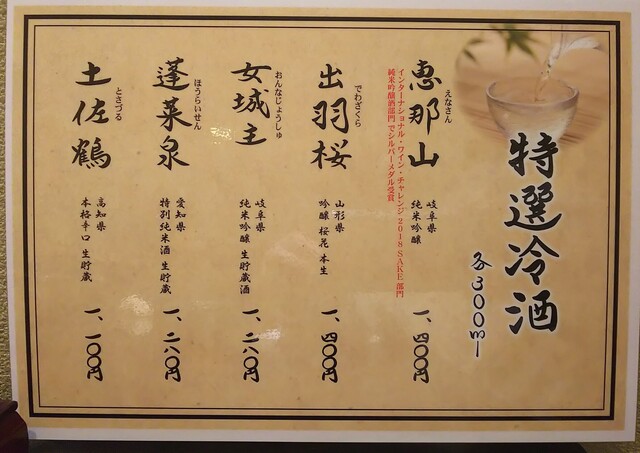 特選冷酒
各300ml
えなさん
恵那山
インターナショナル・ワイン・チャレンジ2018 SAKE部門
純米吟醸酒部門でシルバーメダル受賞
岐阜県
純米吟醸
一、四〇〇円
でわざくら
出羽桜
山形県
吟醸 桜花 本生
一、四〇〇円
おんなじょうしゅ
女城主
岐阜県
純米吟醸 生貯蔵酒
一、二八〇円
ほうらいせん
蓬莱泉
愛知県
特別純米酒 生貯蔵
一、二八〇円
とさづる
土佐鶴
高知県
本格辛口 生貯蔵
一、一〇〇円